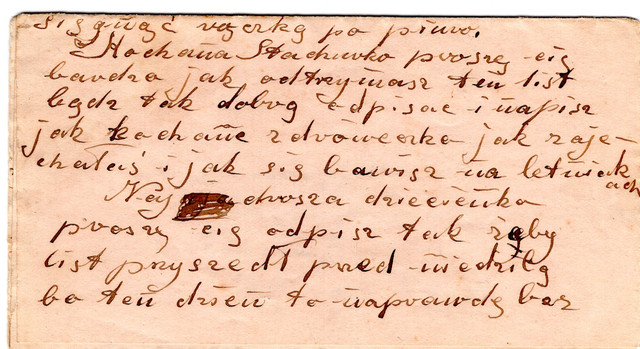 sięgnąć rączką po pióro.
Kochana Stachurko proszę cię
bardzo jak odtrzymasz ten list
bądz tak dobrą odpisać i napisz
jak kochane zdróweczko jak zaje-
chałaś i jak się bawisz na letniakach
Najdrosza dziecieńko
proszę cię odpisz tak żeby
list przyszedł pszed niedzilą
bo ten dzień to naprawdę bez